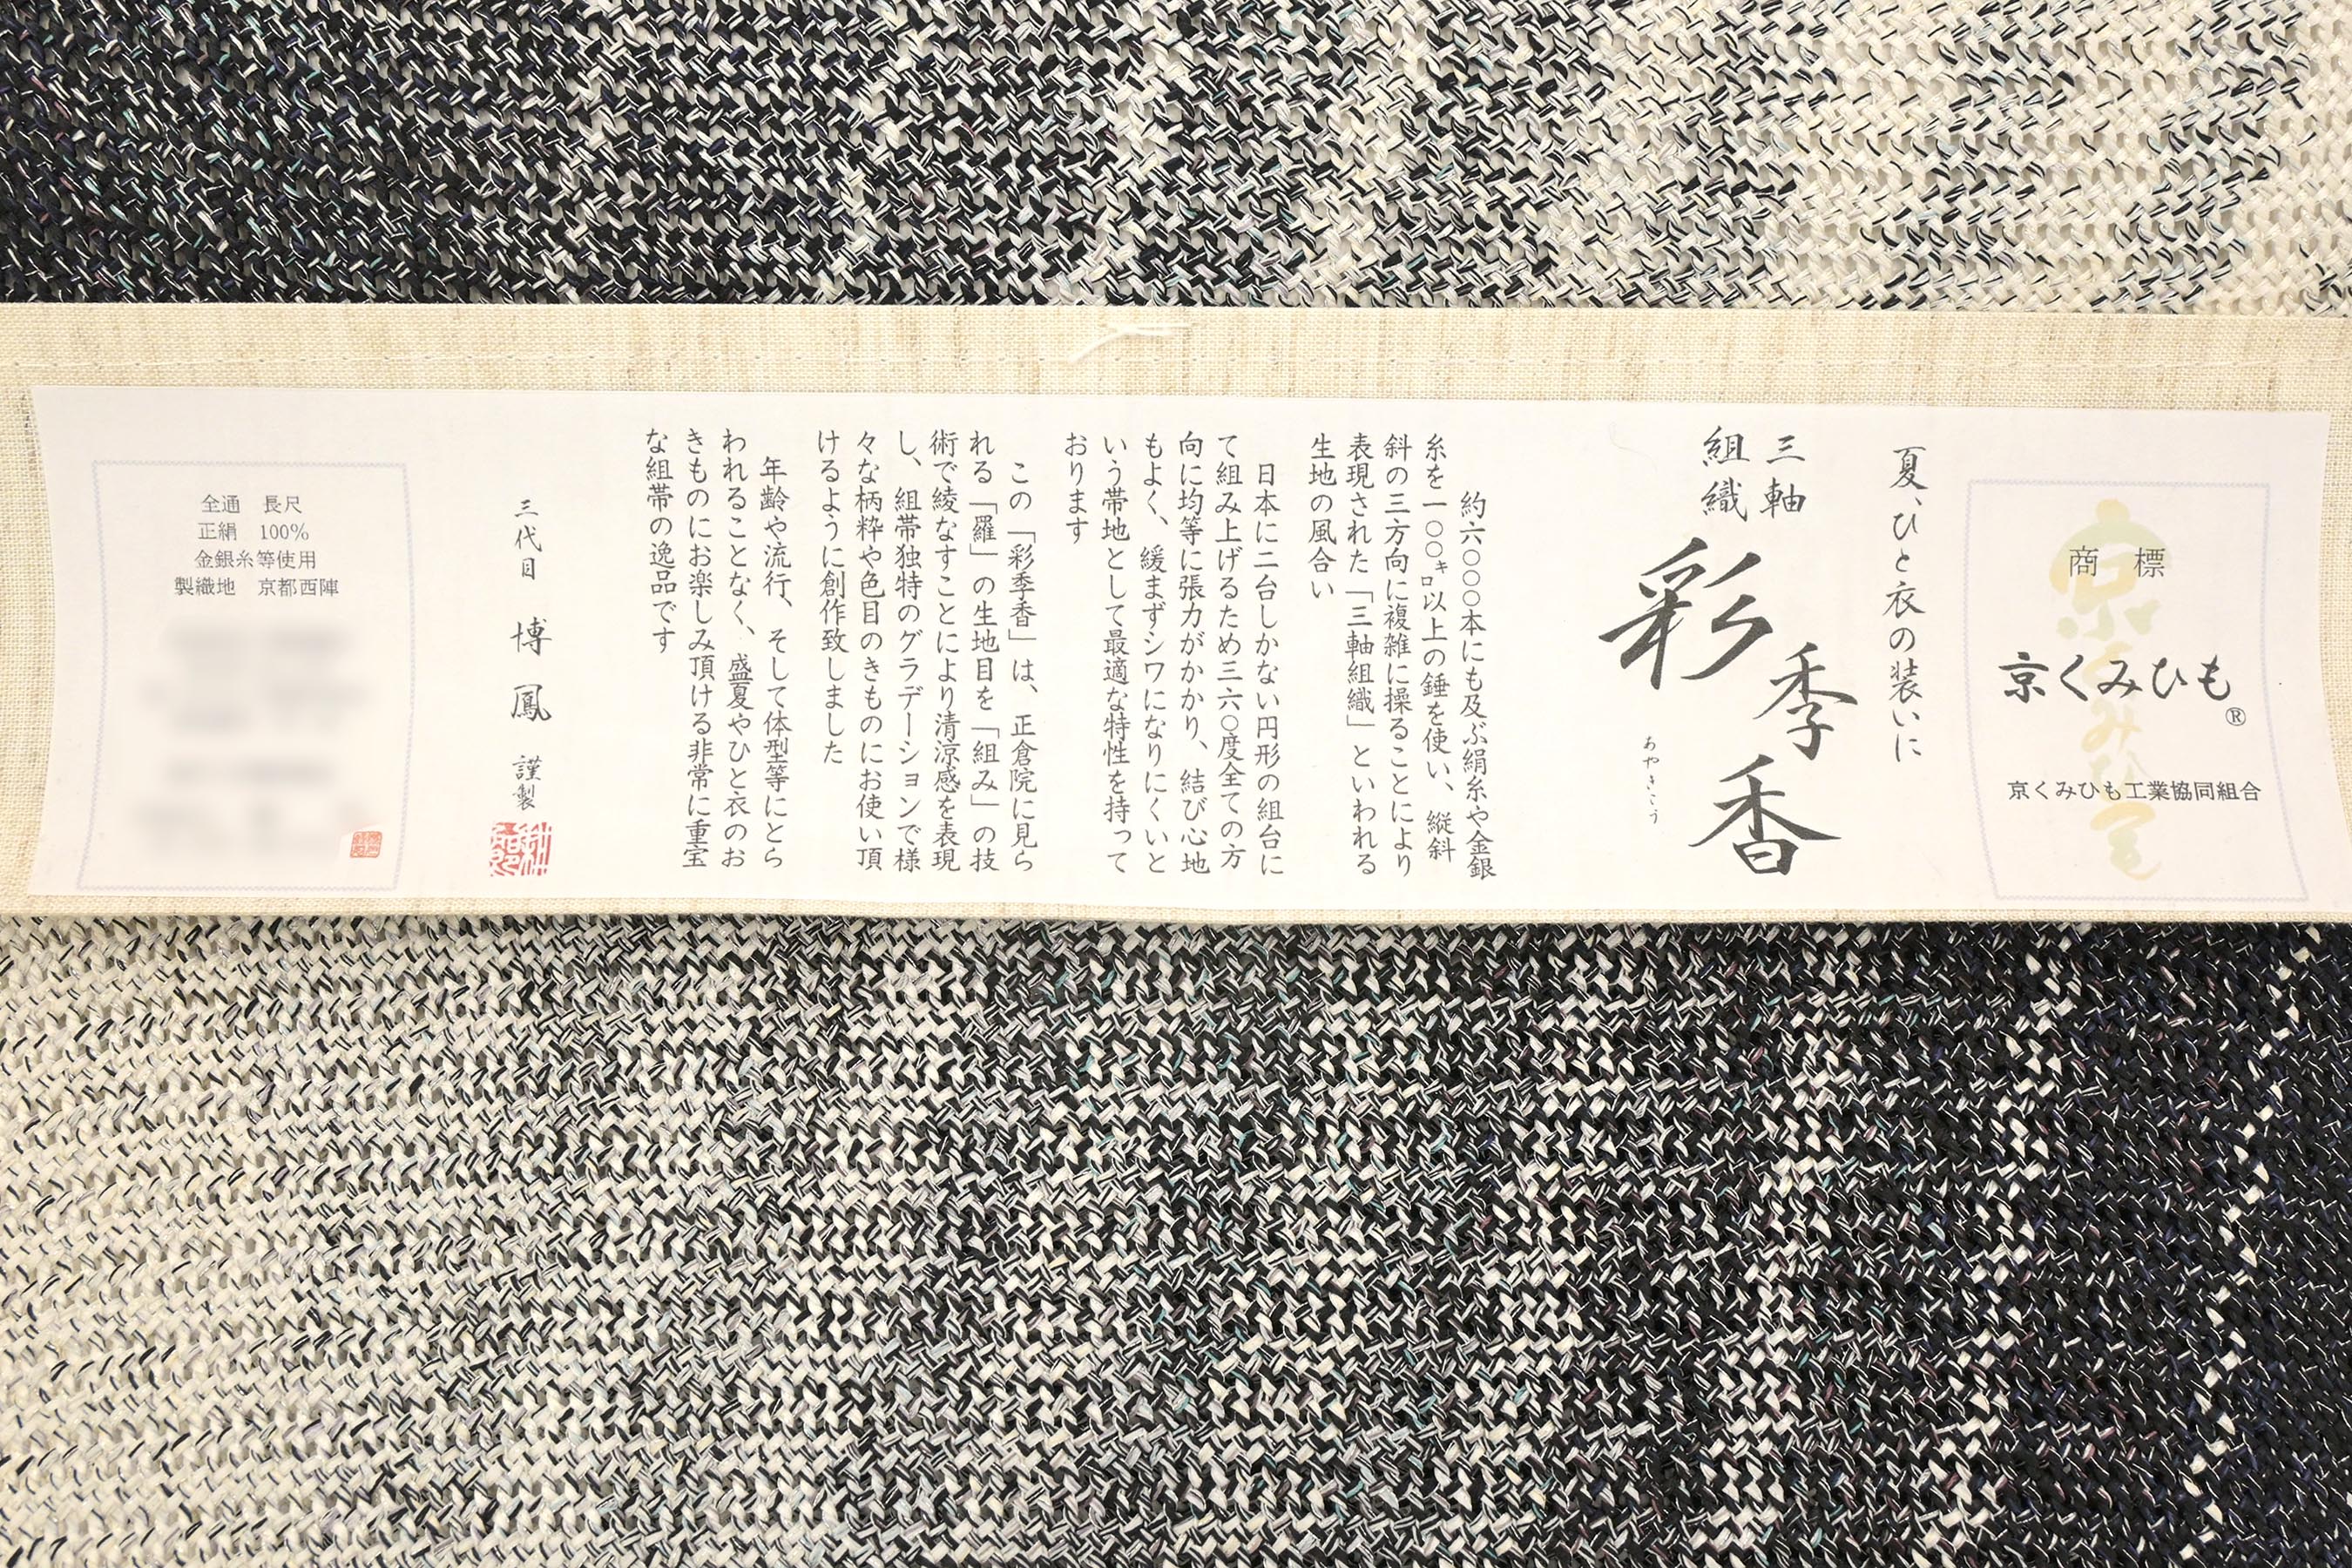 商標
京くみひも®
京くみひも工業協同組合
夏、ひと衣の装いに
三軸
組織
彩季香
あやきこう
約六〇〇〇本にも及ぶ絹糸や金銀
糸を一〇〇㌔以上の錘を使い、縦斜
斜の三方向に複雑に操ることにより
表現された「三軸組織」といわれる
生地の風合い
日本に二台しかない円形の組台に
て組み上げるため三六〇度全ての方
向に均等に張力がかかり、結び心地
もよく、緩まずシワになりにくいと
いう帯地として最適な特性を持って
おります
この「彩季香」は、正倉院に見ら
れる「羅」の生地目を「組み」の技
術で綾なすことにより清涼感を表現
し、組帯独特のグラデーションで様
々な柄粋や色目のきものにお使い頂
けるように創作致しました
年齢や流行、そして体型等にとら
われることなく、盛夏やひと衣のお
きものにお楽しみ頂ける非常に重宝
な組帯の逸品です
三代目 博鳳 謹製
全通 長尺
正絹 100%
金銀糸等使用
製織地 京都西陣